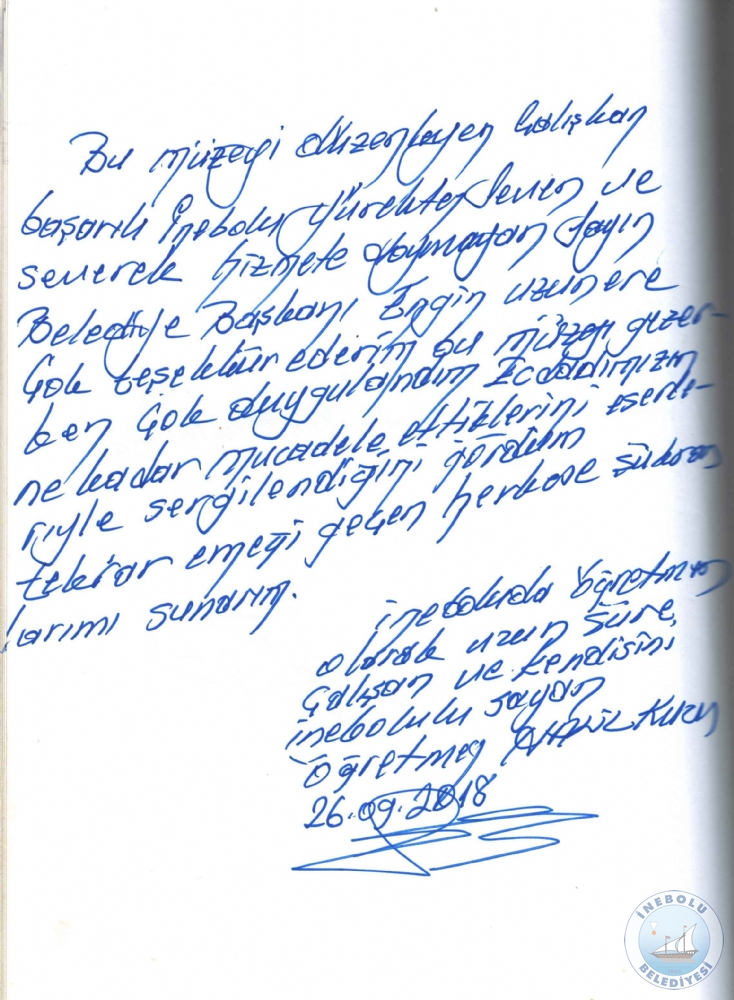 Bu müzeyi düzenleyen Çalışkan
başarılı İnebolu yürekten seven ve
severek hizmete doymayan Sayın
Belediye Başkanı Engin uzunere
Çok teşekkür ederim bu müzeyi gezer-
ken Çok duygulandım Ecdadımızın
ne kadar mücadele ettiklerini eserle-
riyle sergilendiğini gördüm
tekrar emeği geçen herkese şükran
larımı sunarım.
inebolu'da öğretmen
olarak uzun süre,
Çalışan ve kendisini
inebolulu sayan
Öğretmen
26.09.2018
İNEBOLU
BELEDİYESİ